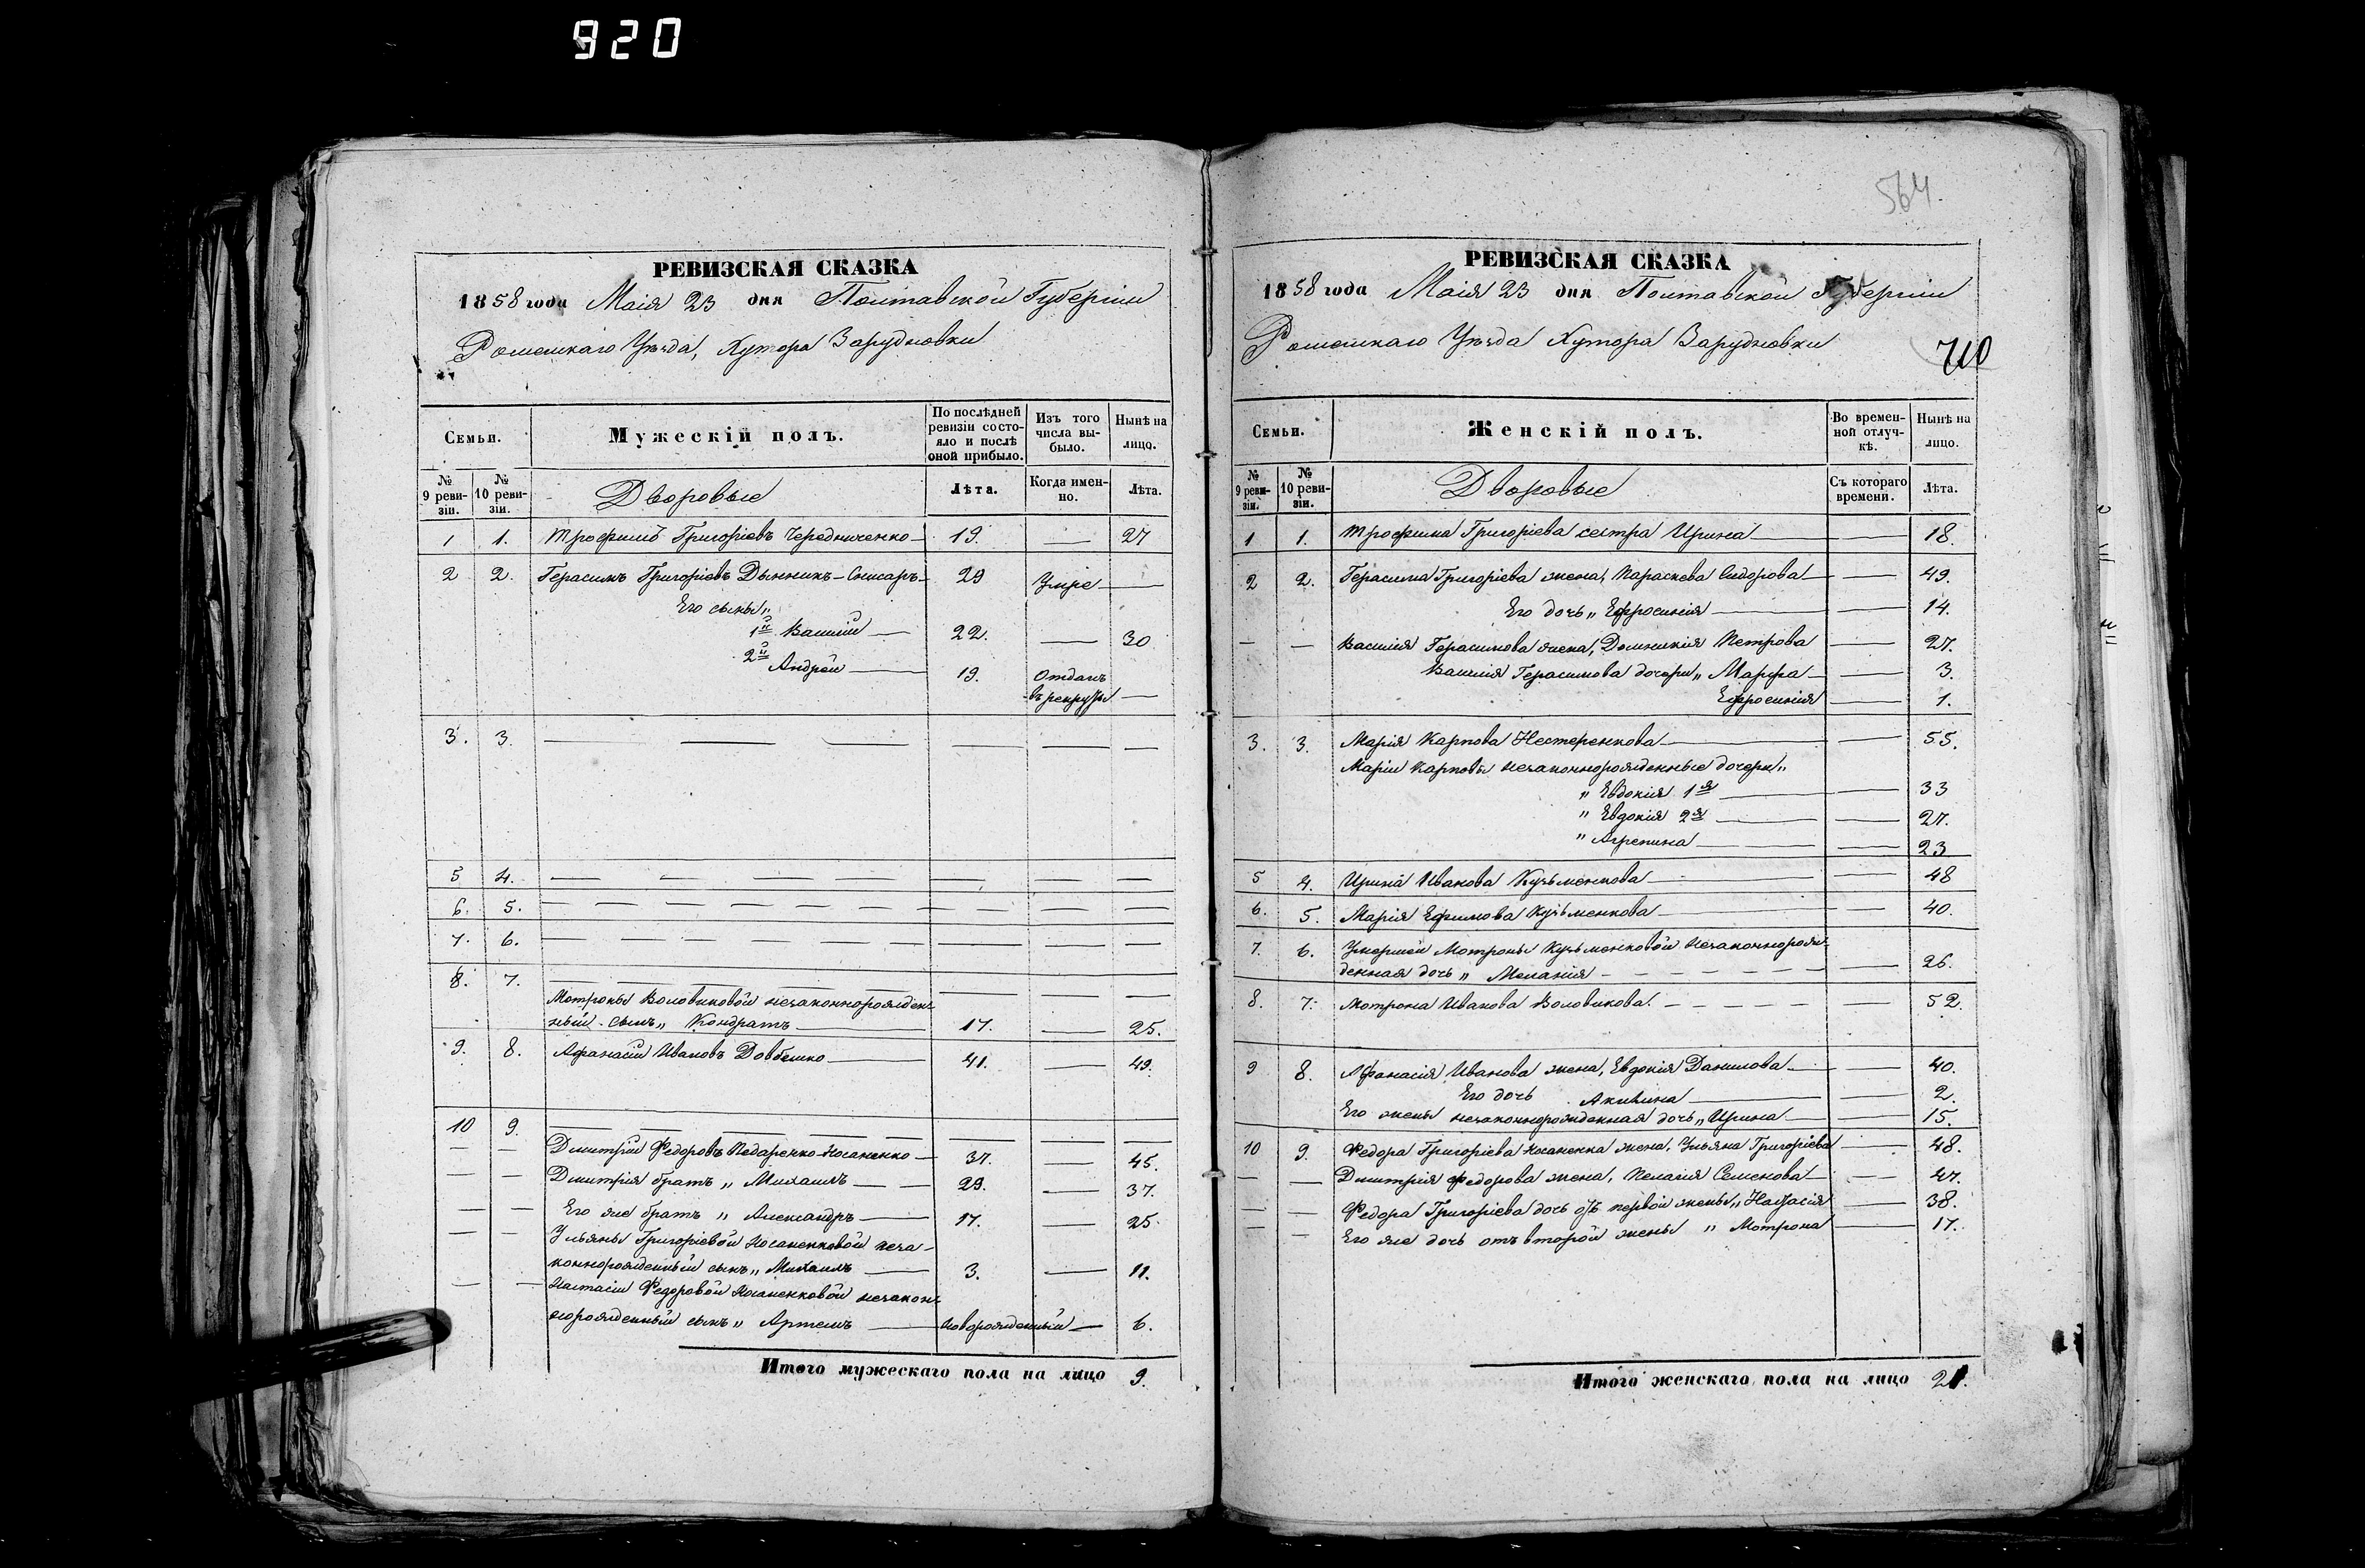 920
РЕВИЗСКАЯ СКАЗКА
1858 года Маія 23 дня Полтавской Губерніи
Роменскаго Уѣзда, Хутора Зарудновки
Семьи.
Мужескій полъ.
По послѣдней ревизіи состояло и послѣ оной прибыло.
Изъ того числа выбыло.
Нынѣ на лицо.
№ 9 ревизіи.
№ 10 ревизіи.
Дворовые
Лѣта.
Когда именно.
Лѣта.
1 1. Трофимъ Григоріевъ Чередниченко 19. — 27
2 2. Герасимъ Григоріевъ Дынникъ-Снисаръ 29 Умре —
Его сыны„
1й Василій — 22. — 30
2й Андрей — 19. Отданъ
въ рекруты —
3. 3. — — — — — —
5 4. — — — — — —
6. 5. — — — — — —
7. 6. — — — — — —
8. 7. — — — — — —
Мотроны Воловиковой незаконнорожден-
ный сынъ„ Кондратъ — 17. — 25.
9. 8. Афанасій Ивановъ Довбешко — 41. — 49.
10 9. — — — — — —
— — Дмитрій Федоровъ Педаренко-Носаненко — 37. — 45.
— — Дмитрія братъ „ Михаилъ — 29. — 37.
— — Его же братъ „ Александръ — 17. — 25.
— — Ульяны Григоріевой Носаненковой неза-
коннорожденный сынъ„ Михаилъ — 3. — 11.
— — Настасіи Федоровой Носаненковой незакон-
норожденный сынъ„ Артемъ — новорожденный — 6.
Итого мужескаго пола на лицо 9.
564.
РЕВИЗСКАЯ СКАЗКА
1858 года Маія 23 дня Полтавской Губерніи
Роменскаго Уѣзда Хутора Зарудновки
710
Семьи.
Женскій полъ.
Во временной отлучкѣ.
Нынѣ на лицо.
№ 9 ревизіи.
№ 10 ревизіи.
Дворовые
Съ котораго времени.
Лѣта.
1 1. Трофима Григоріева сестра Ирина — — 18.
2 2. Герасима Григоріева жена, Параскева Сидорова — — 49.
Его дочь„ Ефросинія — — 14.
— — Василія Герасимова жена, Домникія Петрова — 27.
Василія Герасимова дочери„ Марфа — — 3.
Ефросинія — 1.
3. 3. Марія Карпова Нестеренкова — — 55.
Маріи Карповы незаконнорожденные дочери„
„ Евдокія 1я — — 33
„ Евдокія 2я — — 27.
„ Агрепина — — 23
5 4. Ирина Иванова Кузьменкова — — 48
6. 5. Марія Ефимова Кузьменкова — — 40.
7. 6. Умершей Мотроны Кузьменковой незаконнорож-
денная дочь „ Меланія — — 26.
8. 7. Мотрона Иванова Воловикова. — — 52.
9 8. Афанасія Иванова жена, Евдокія Данилова — — 40.
Его дочь Акилина — — 2.
Его жены незаконнорожденная дочь„ Ирина — — 15.
10 9. Федора Григоріева Носаненка жена, Ульяна Григоріева — 48.
— — Дмитрія Федорова жена, Пелагія Семенова — — 47.
— — Федора Григоріева дочь отъ первой жены„ Настасія — 38.
— — Его же дочь отъ второй жены „ Мотрона — 17.
Итого женскаго пола на лицо 21.